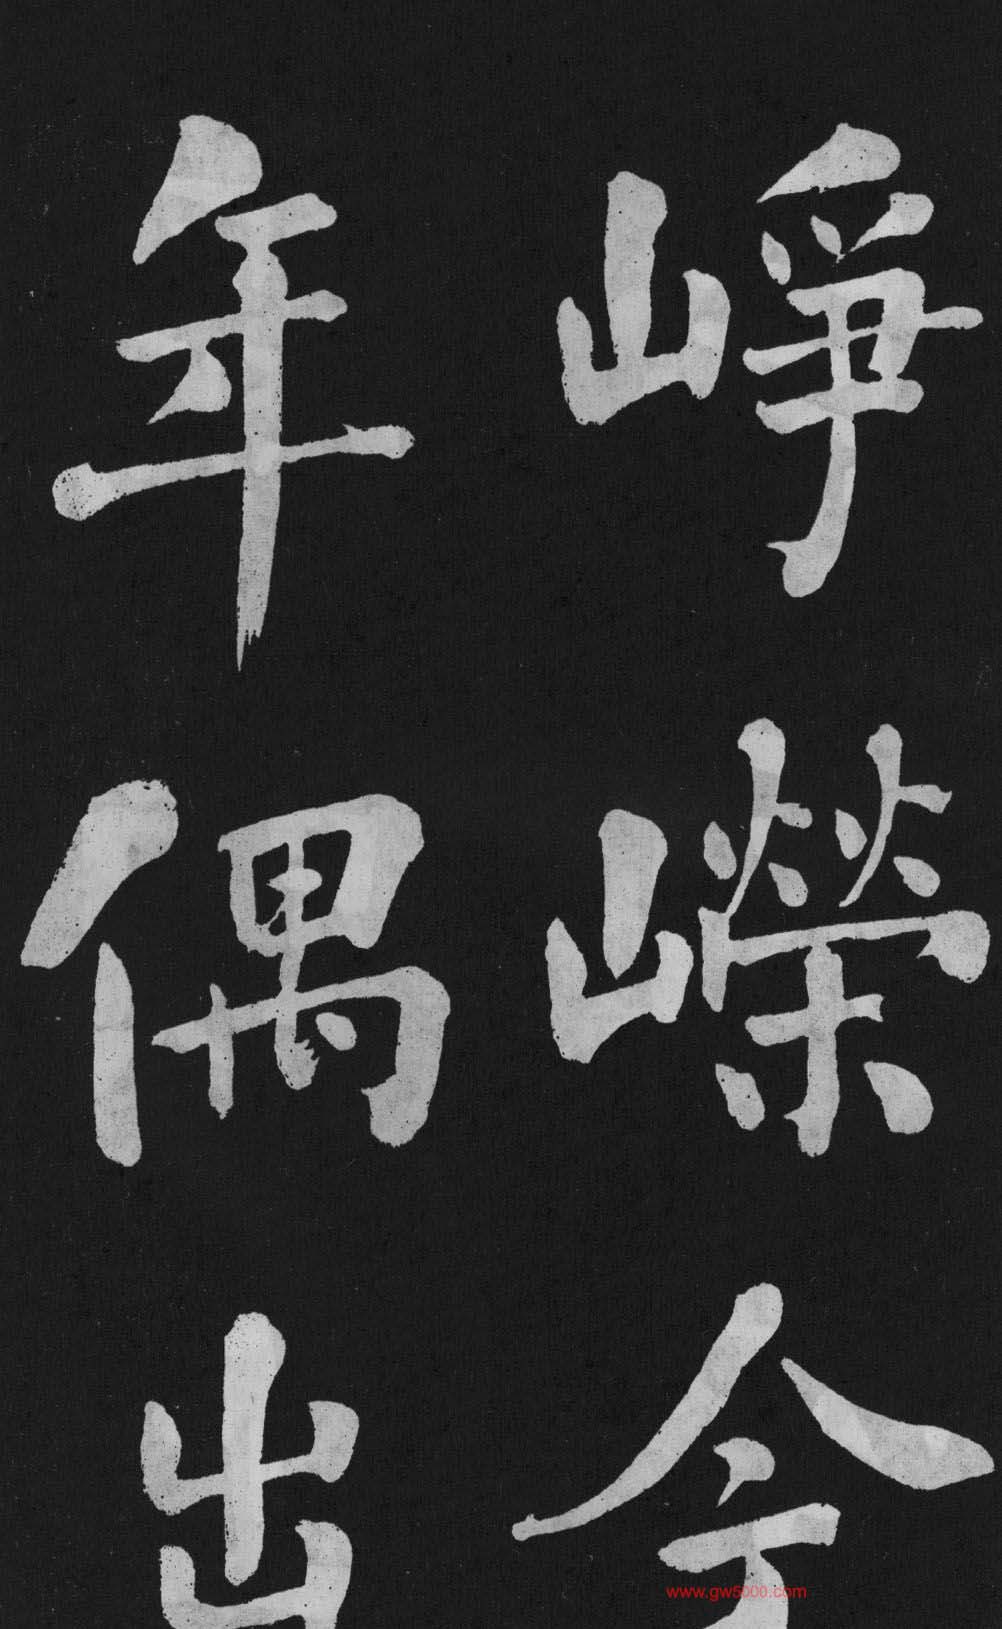 崢嶸今
年偶出
www.gw5000.com